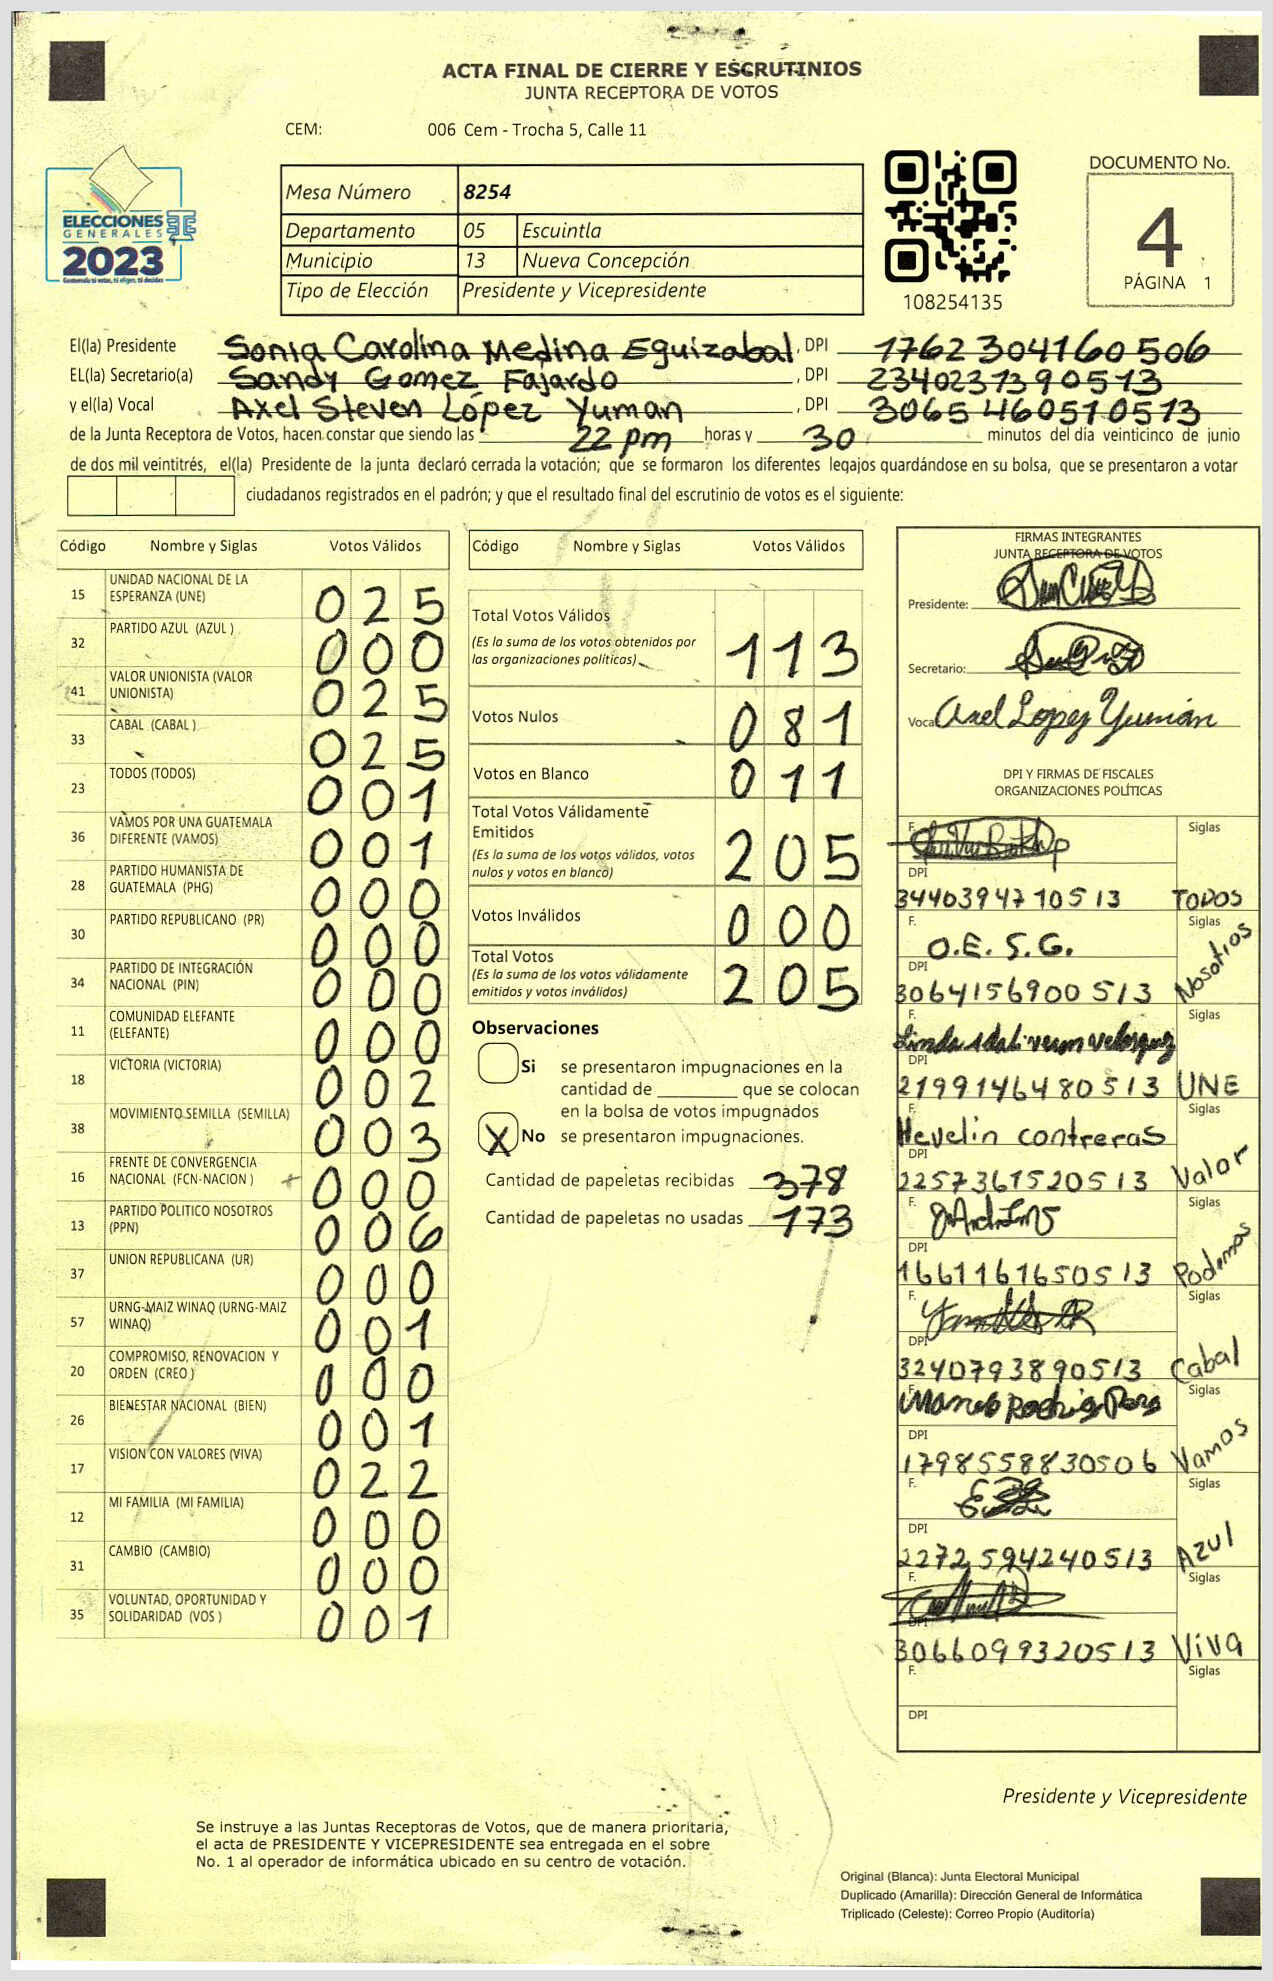 ACTA FINAL DE CIERRE Y ESCRUTINIOS
JUNTA RECEPTORA DE VOTOS
CEM: 006 Cem - Trocha 5, Calle 11
ELECCIONES
GENERALES
2023
Guatemala tú votas, tú eliges, tú decides
Mesa Número 8254
Departamento 05 Escuintla
Municipio 13 Nueva Concepción
Tipo de Elección Presidente y Vicepresidente
108254135
DOCUMENTO No.
4
PÁGINA 1
El(la) Presidente Sonia Carolina Medina Eguizabal, DPI 1762304160506
EL(la) Secretario(a) Sandy Gomez Fajardo, DPI 2340231390513
y el(la) Vocal Axel Steven López Yuman, DPI 3065460510513
de la Junta Receptora de Votos, hacen constar que siendo las 22 pm horas y 30 minutos del día veinticinco de junio
de dos mil veintitrés, el(la) Presidente de la junta declaró cerrada la votación; que se formaron los diferentes legajos guardándose en su bolsa, que se presentaron a votar
ciudadanos registrados en el padrón; y que el resultado final del escrutinio de votos es el siguiente:
Código Nombre y Siglas Votos Válidos
15 UNIDAD NACIONAL DE LA ESPERANZA (UNE) 025
32 PARTIDO AZUL (AZUL ) 000
41 VALOR UNIONISTA (VALOR UNIONISTA) 025
33 CABAL (CABAL ) 025
23 TODOS (TODOS) 001
36 VAMOS POR UNA GUATEMALA DIFERENTE (VAMOS) 001
28 PARTIDO HUMANISTA DE GUATEMALA (PHG) 000
30 PARTIDO REPUBLICANO (PR) 000
34 PARTIDO DE INTEGRACIÓN NACIONAL (PIN) 000
11 COMUNIDAD ELEFANTE (ELEFANTE) 000
18 VICTORIA (VICTORIA) 002
38 MOVIMIENTO SEMILLA (SEMILLA) 003
16 FRENTE DE CONVERGENCIA NACIONAL (FCN-NACION ) 000
13 PARTIDO POLITICO NOSOTROS (PPN) 006
37 UNION REPUBLICANA (UR) 000
57 URNG-MAIZ WINAQ (URNG-MAIZ WINAQ) 001
20 COMPROMISO, RENOVACION Y ORDEN (CREO ) 000
26 BIENESTAR NACIONAL (BIEN) 001
17 VISION CON VALORES (VIVA) 022
12 MI FAMILIA (MI FAMILIA) 000
31 CAMBIO (CAMBIO) 000
35 VOLUNTAD, OPORTUNIDAD Y SOLIDARIDAD (VOS ) 001
Código Nombre y Siglas Votos Válidos
Total Votos Válidos 113
(Es la suma de los votos obtenidos por
las organizaciones políticas)
Votos Nulos 081
Votos en Blanco 011
Total Votos Válidamente
Emitidos 205
(Es la suma de los votos válidos, votos
nulos y votos en blanco)
Votos Inválidos 000
Total Votos 205
(Es la suma de los votos válidamente
emitidos y votos inválidos)
Observaciones
Si se presentaron impugnaciones en la
cantidad de ________ que se colocan
en la bolsa de votos impugnados
X No se presentaron impugnaciones.
Cantidad de papeletas recibidas 378
Cantidad de papeletas no usadas 173
FIRMAS INTEGRANTES
JUNTA RECEPTORA DE VOTOS
Presidente:
Secretario:
Vocal Axel Lopez Yumán
DPI Y FIRMAS DE FISCALES
ORGANIZACIONES POLÍTICAS
F. Siglas
DPI
3440394710513 TODOS
F. O.E.S.G. Siglas
DPI
3064156900513 Nosotros
F. Siglas
Linda
DPI
2199146480513 UNE
F. Siglas
Hevelin contreras
DPI
2257361520513 Valor
F. Siglas
DPI
1661161650513 Podemos
F. Siglas
DPI
3240793890513 Cabal
F. Siglas
DPI
1798558830506 Vamos
F. Siglas
DPI
2272594240513 Azul
F. Siglas
DPI
3066099320513 Viva
F. Siglas
DPI
Presidente y Vicepresidente
Se instruye a las Juntas Receptoras de Votos, que de manera prioritaria,
el acta de PRESIDENTE Y VICEPRESIDENTE sea entregada en el sobre
No. 1 al operador de informática ubicado en su centro de votación.
Original (Blanca): Junta Electoral Municipal
Duplicado (Amarilla): Dirección General de Informática
Triplicado (Celeste): Correo Propio (Auditoría)